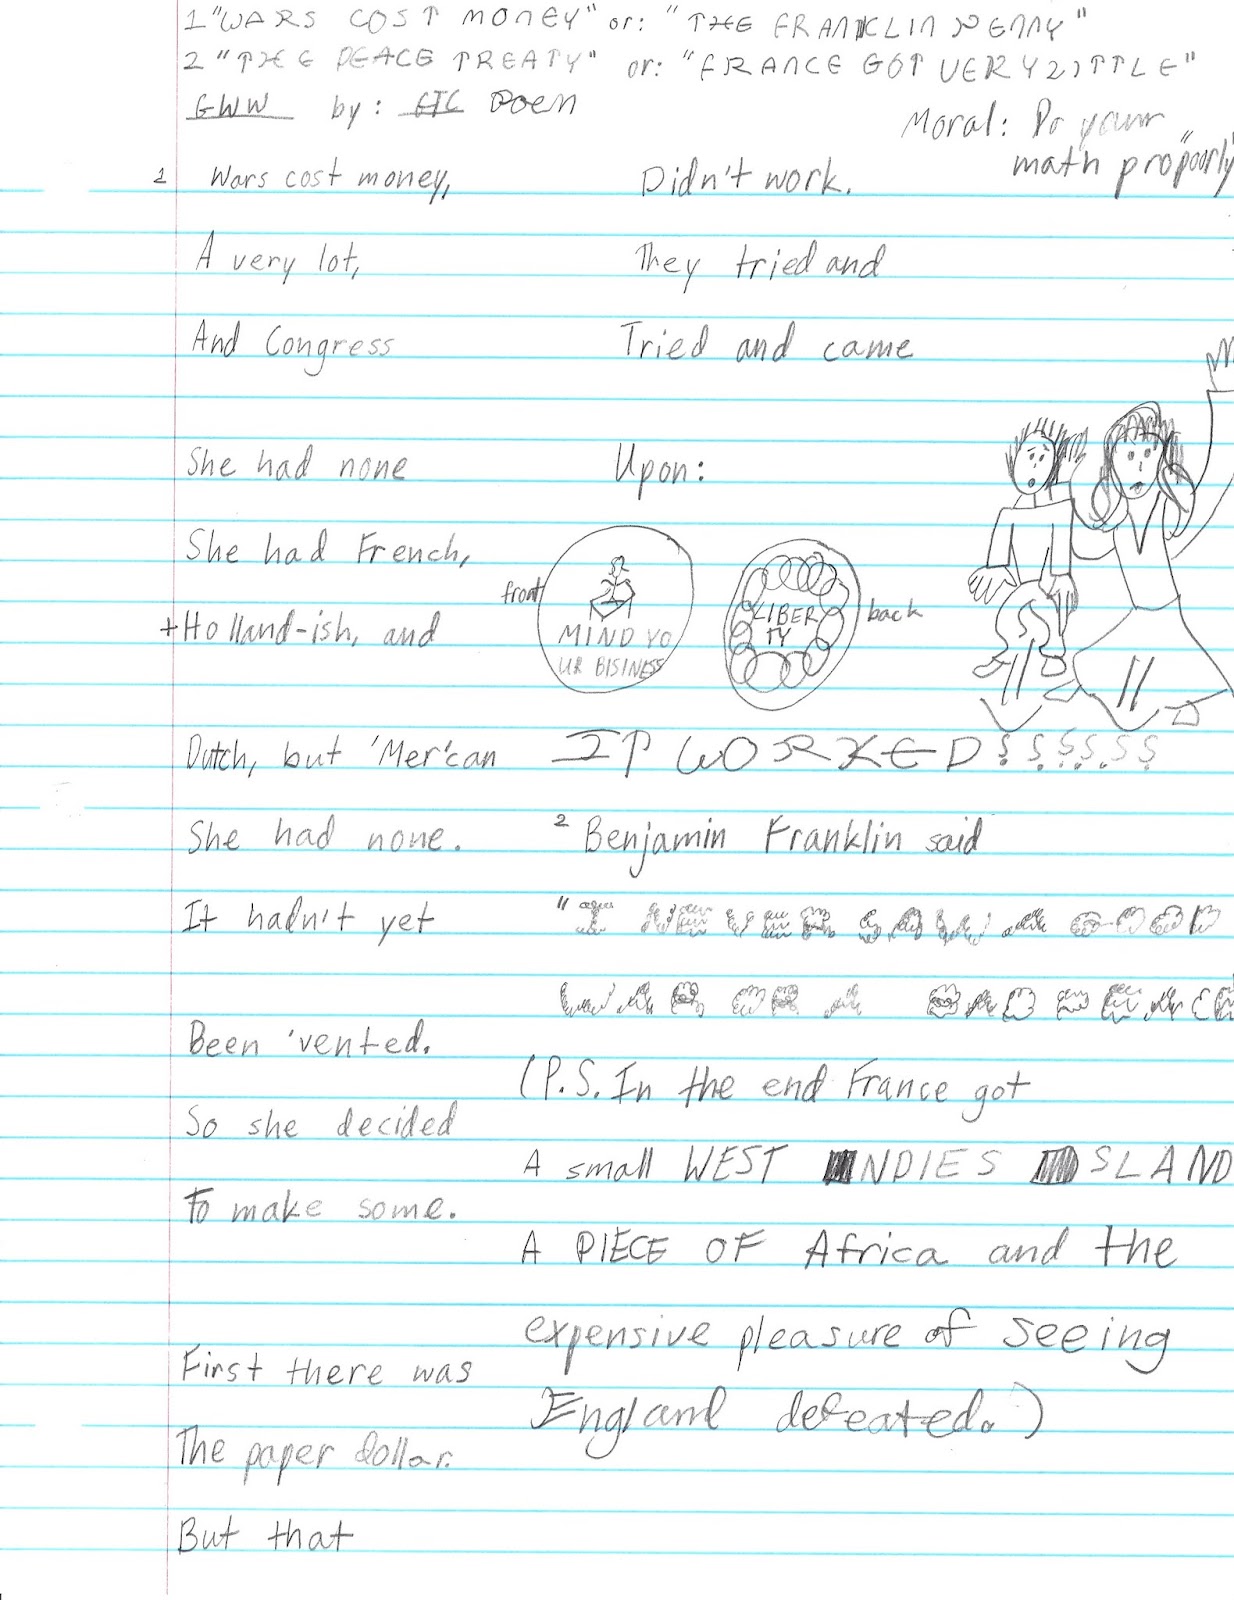 1 "WARS COST MONEY" or: "THE FRANKLIN PENNY"
2 "THE PEACE TREATY" or: "FRANCE GOT VERY LITTLE"
GWW by: Poem
Moral: Do your
math pro"poorly"
1 Wars cost money,
A very lot,
And Congress
She had none
She had French,
+Holland-ish, and
Dutch, but 'Mer'can
She had none.
It hadn't yet
Been 'vented.
So she decided
To make some.
First there was
The paper dollar.
But that
Didn't work.
They tried and
Tried and came
Upon:
front
MIND YO
UR BISINESS
LIBER
TY
back
IT WORKED
2 Benjamin Franklin said
"I NEVER SAW A GOOD
WAR OR A BAD PEACE
(P.S. In the end France got
A small WEST INDIES ISLAND
A PIECE OF Africa and the
expensive pleasure of seeing
England defeated.)